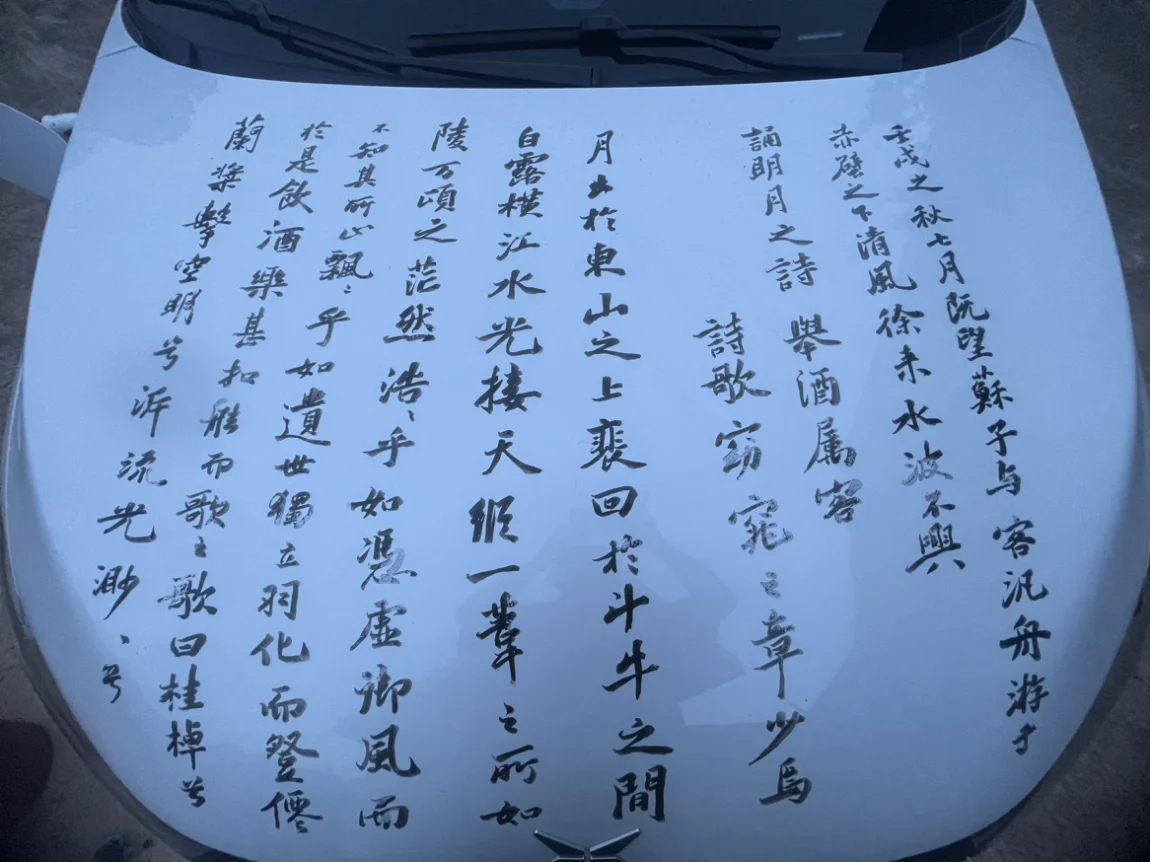 壬戌之秋七月既望蘇子与客汎舟游于
赤壁之下清風徐来水波不興
誦明月之詩舉酒属客
詩歌窈窕之章少焉
月出於東山之上裴回於斗牛之間
白露橫江水光接天縱一葦之所如
陵万頃之茫然浩〻乎如馮虛御風而
不知其所止飄〻乎如遺世獨立羽化而登僊
於是飲酒樂甚扣舷而歌之歌曰桂棹兮
蘭槳擊空明兮泝流光渺〻兮